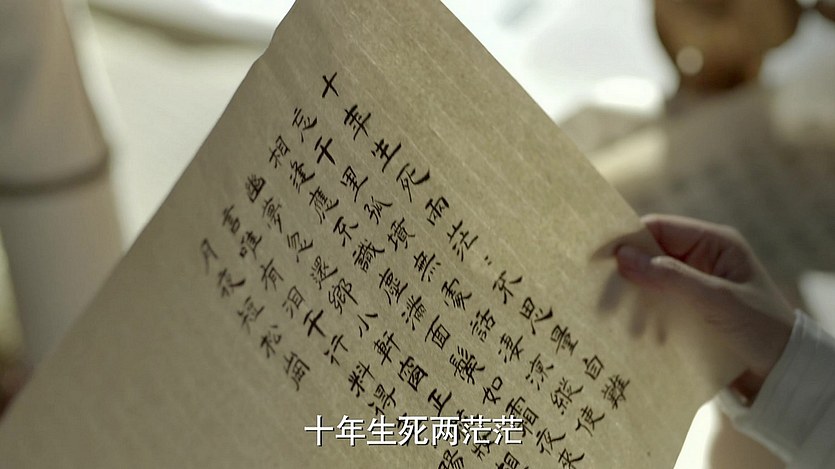 十年生死兩茫：不思量自難
忘千里孤墳無處話淒涼縱使
相逢應不識塵滿面鬢如霜夜來
幽夢忽還鄉小軒窗正
言唯有淚千行料得
月夜短松崗
十年生死两茫茫